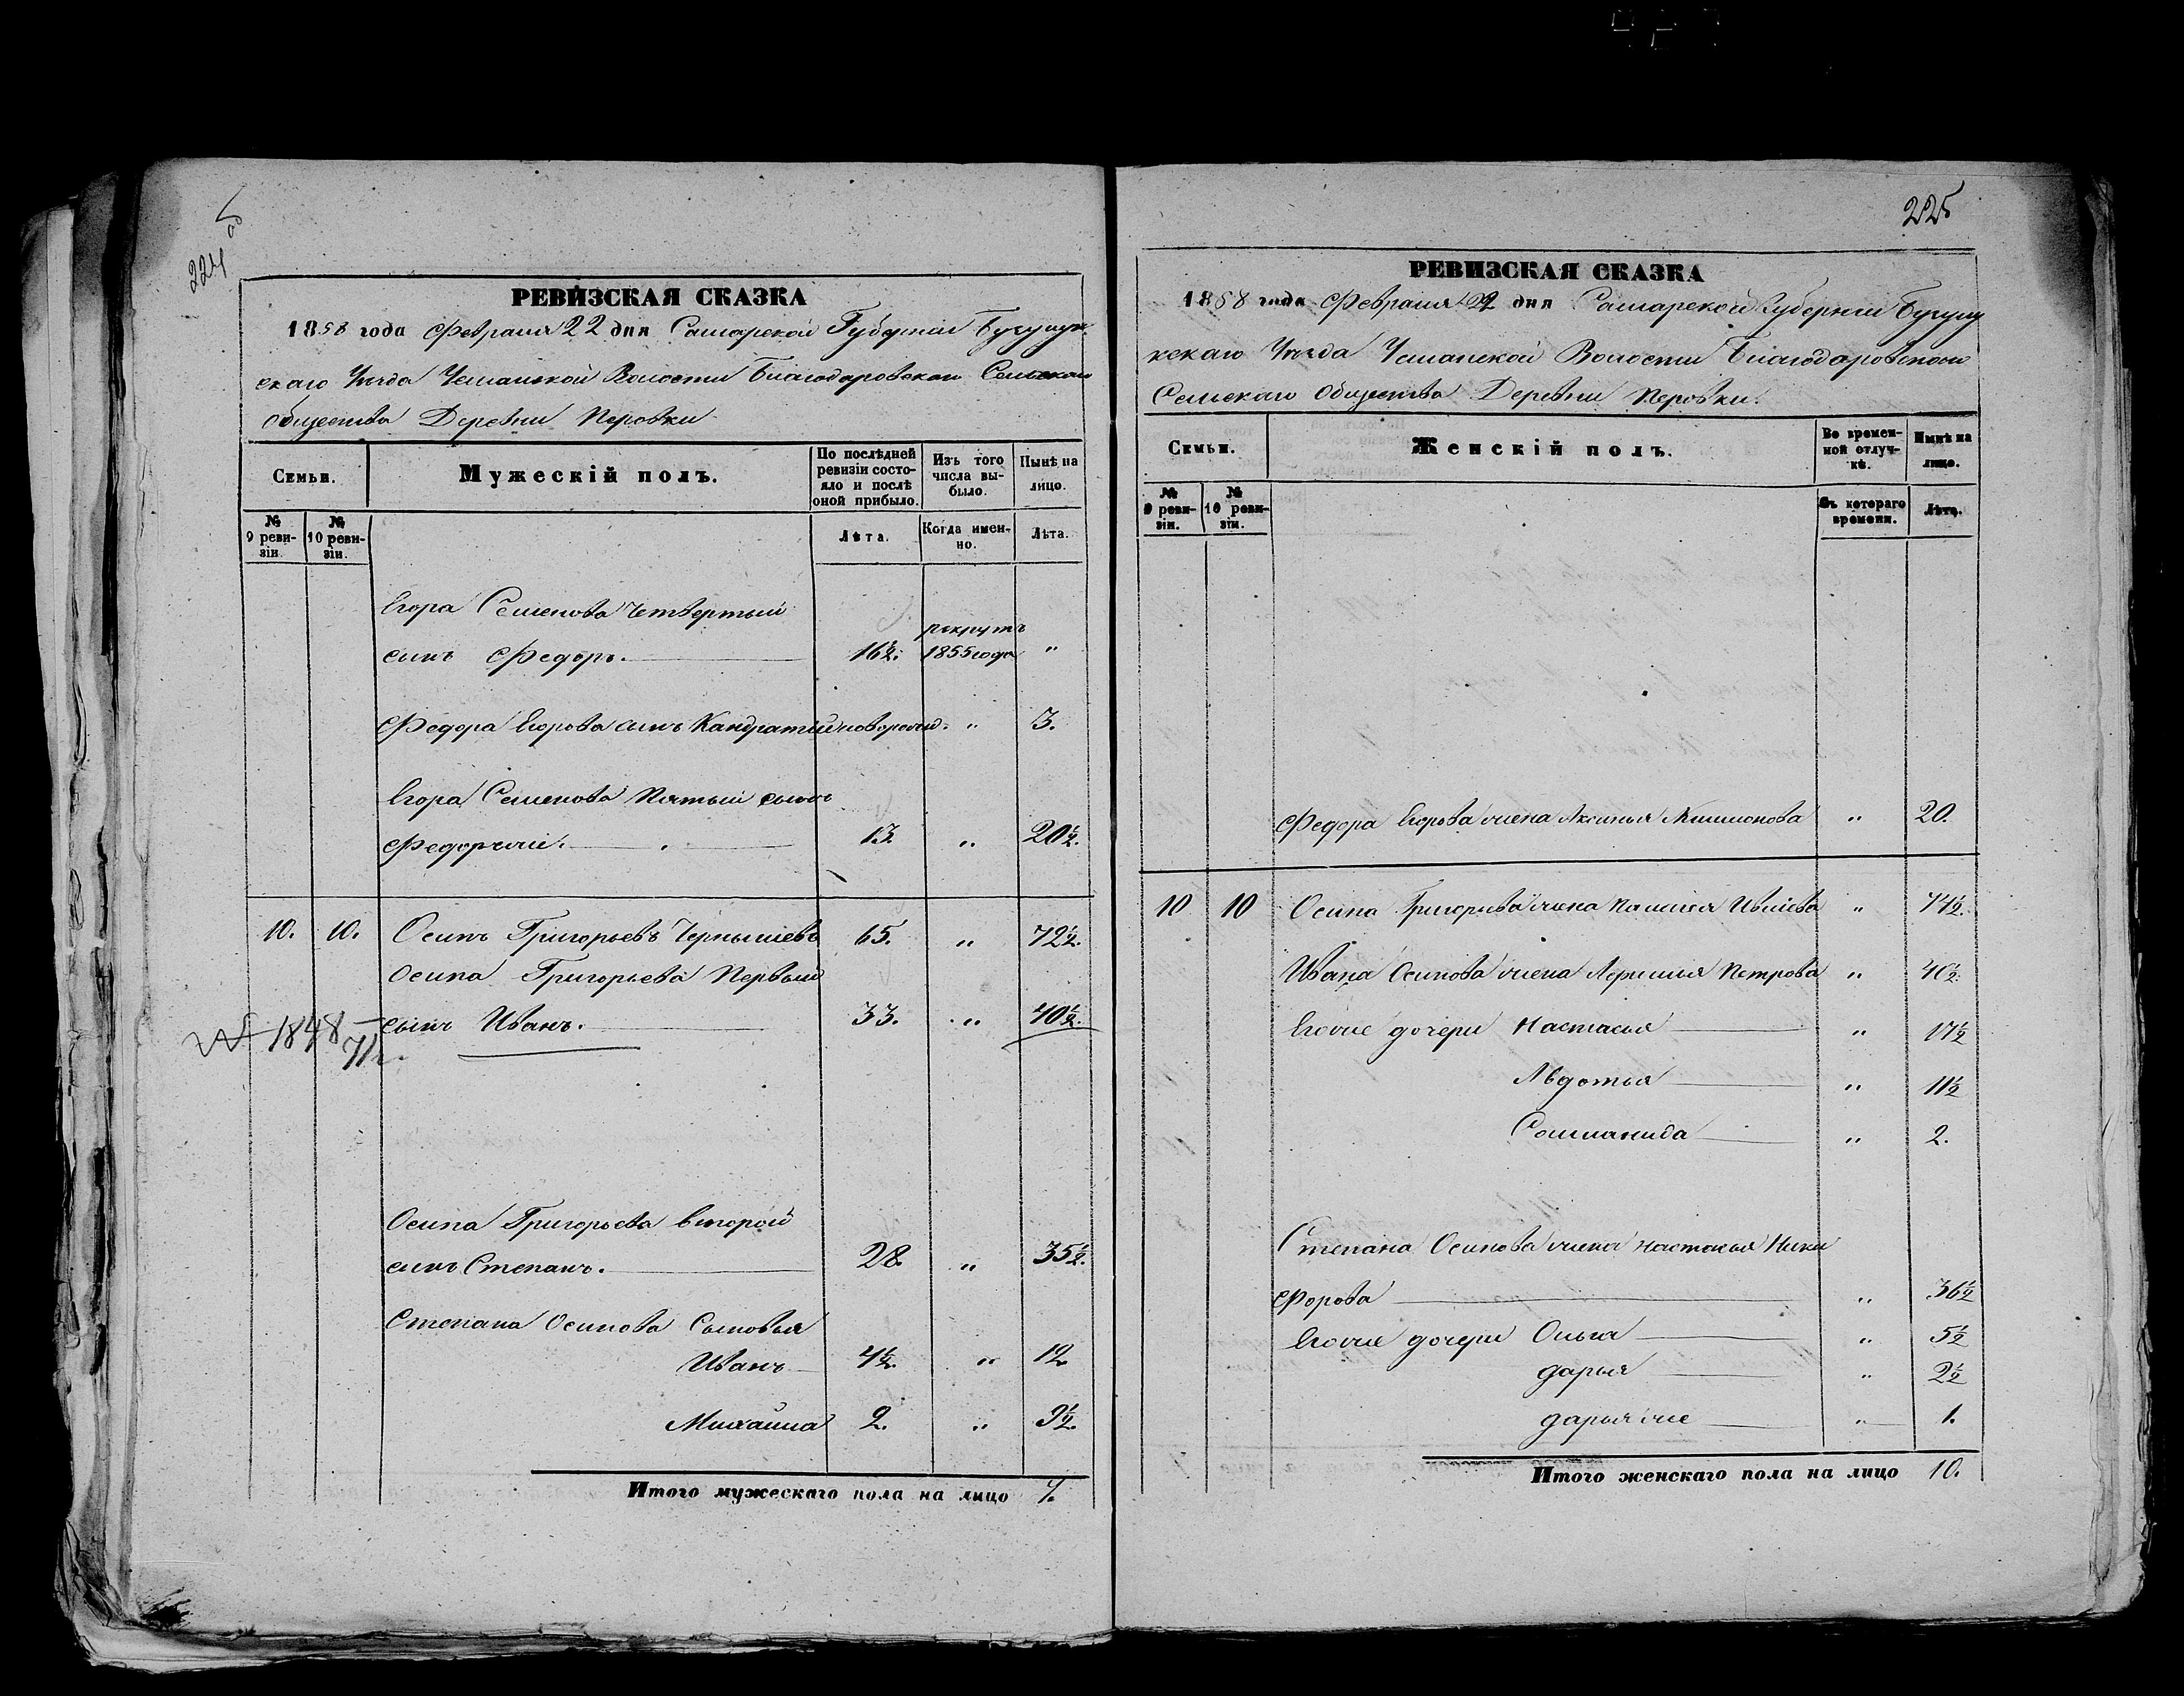 224 об
РЕВИЗСКАЯ СКАЗКА
1858 года Февраля 22 дня Самарской Губерніи Бугурус
скаго Уѣзда Волости Благодаровскаго Сельскаго
Общества Деревни Перовки
Семьи.
Мужескій полъ.
По послѣдней ревизіи состояло и послѣ оной прибыло.
Изъ того числа выбыло.
Нынѣ на лицо.
№ 9 ревизіи.
№ 10 ревизіи.
Лѣта.
Когда именно.
Лѣта.
Егора Семенова четвертый
рекрутъ
сынъ Федоръ. 16½. 1855 года "
Федора Егорова сынъ Кандратій новорожд. " 3.
Егора Семенова Пятый сынъ
Федоръ же. 13. " 20½.
10. 10. Осипъ Григорьевъ Чернышевъ 65. " 72½.
Осипа Григорьева Первый
сынъ Иванъ. 33. " 40½.
1848 –
71г.
Осипа Григорьева второй
сынъ Степанъ. 28. " 35½.
Степана Осипова Сыновья
Иванъ 4½. " 12
Михаила 2. " 9½.
Итого мужескаго пола на лицо 7.
225
РЕВИЗСКАЯ СКАЗКА
1858 года Февраля 22 дня Самарской Губерніи Бугуру
скаго Уѣзда Волости Благодаровскаго
Сельскаго Общества Деревни Перовки.
Семьи.
Женскій полъ.
Во временной отлучкѣ.
Нынѣ на лицо.
№ 9 ревизіи.
№ 10 ревизіи.
Съ котораго времени.
Лѣта.
Федора Егорова жена Аксинья " 20.
10 10 Осипа Григорьева жена " 74½.
Ивана Осипова жена Петрова " 40½.
Егоже дочери Настасья " 17½
Авдотья " 11½
Соломанида " 2.
Степана Осипова жена Настасья Ники
форова " 36½
Егоже дочери Ольга " 5½
дарья " 2½
дарья же " 1.
Итого женскаго пола на лицо 10.